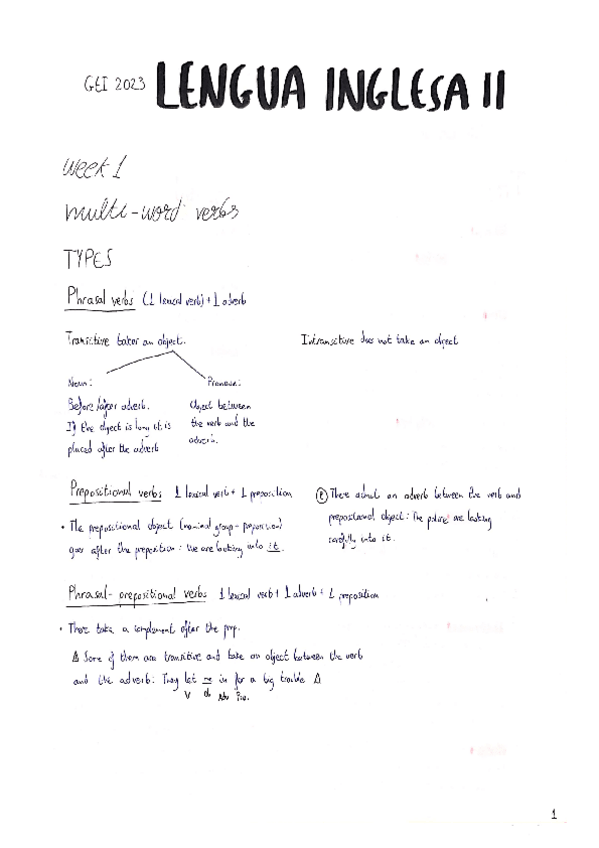 GEI 2023 LENGUA INGLESA II
week 1
multi-word verbs
TYPES
Phrasal verbs (1 lexical verb) + 1 adverb
Transitive takes an object.
Intransitive does not take an object
Noun:
Before / after adverb.
If the object is long it is
placed after the adverb
Pronoun:
Object between
the verb and the
adverb.
Prepositional verbs 1 lexical verb + 1 preposition
• The prepositional object (nominal group - preposition)
goes after the preposition: We are looking into it.
an adverb between the verb and
prepositional object: The police are looking
carefully into it.
Phrasal-prepositional verbs 1 lexical verb + 1 adverb + 1 preposition
• These take a complement after the prep.
Some of them are transitive and take an object between the verb
and the adverb: They let me in for a big trouble
V do Adv Pre.
1